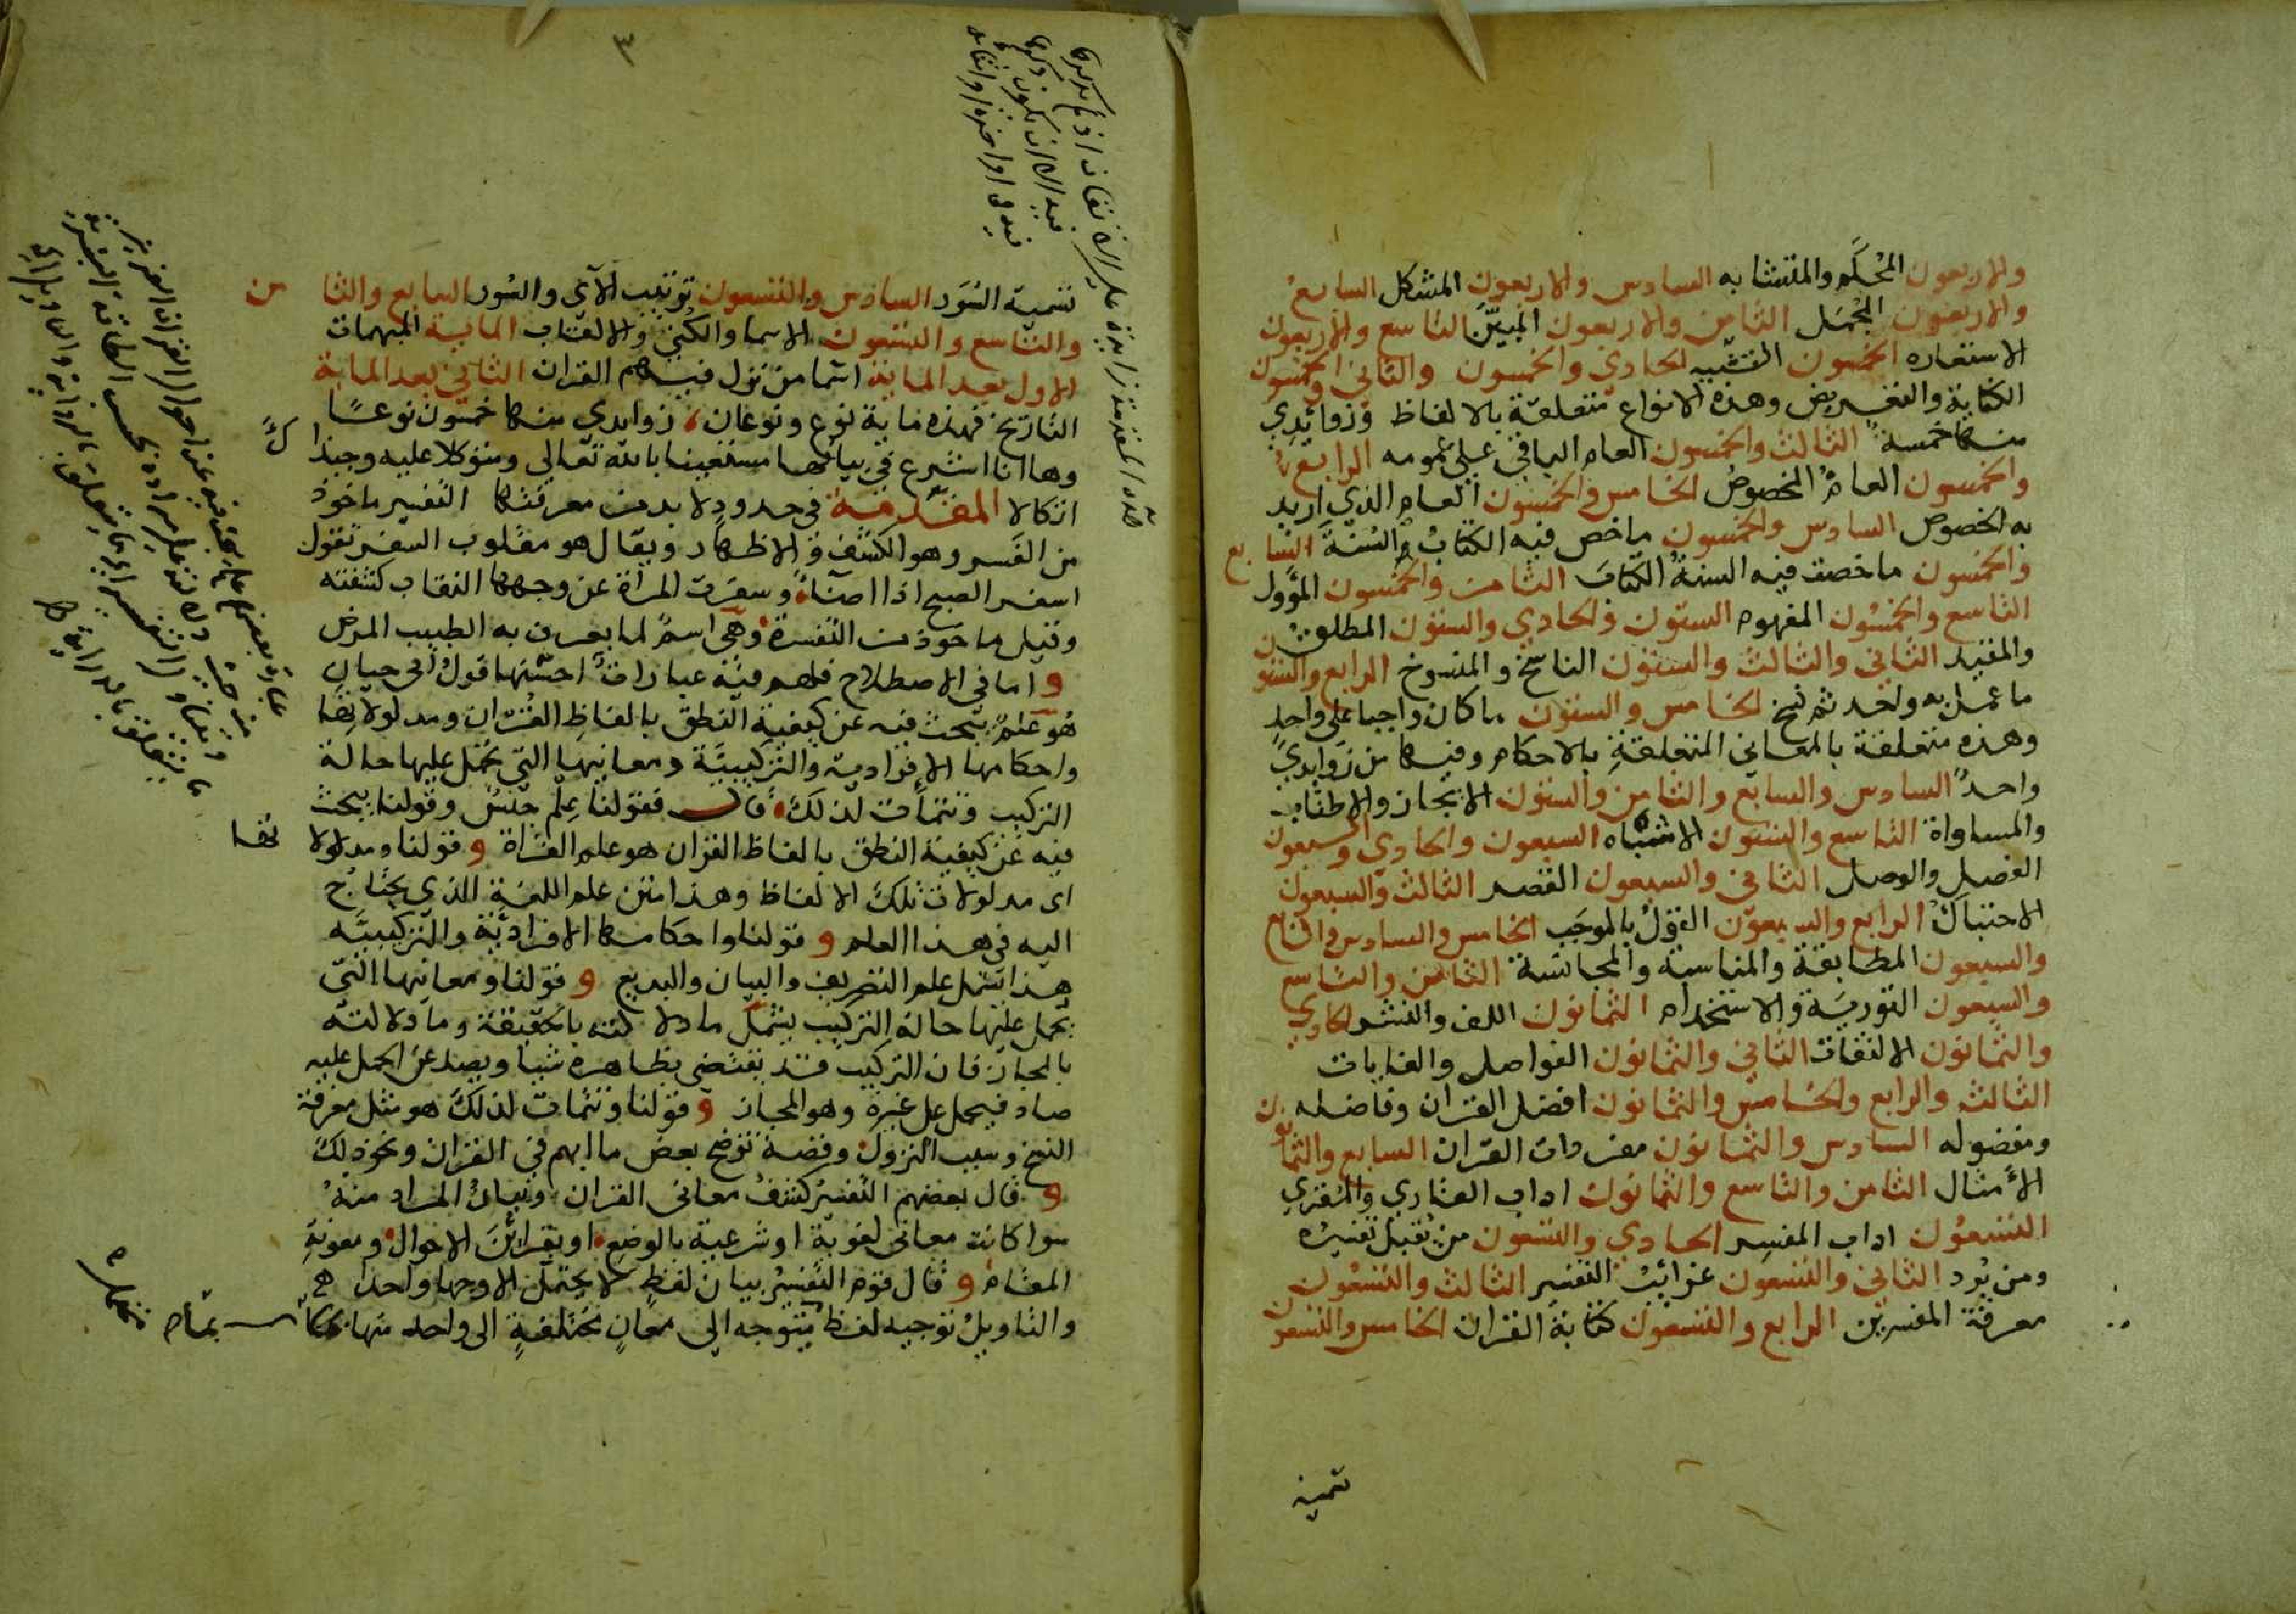 والاربعون المُحْكَم والمتشابه السادس والاربعون المشكل السابع
والاربعون المجْمَل الثامن والاربعون المبيَّن التاسع والاربعون
الاستعاره الخمسون التشبيه الحادي والخمسون والثاني والخمسون
الكناية والتعريض وهذه الانواع متعلقة بالالفاظ وزوائدي
منها خمسة الثالث والخمسون العام الباقي على عمومه الرابع
والخمسون العام المخصوص الخامس والخمسون العام الذي اريد
به الخصوص السادس والخمسون ما خص فيه الكتابُ السُنّةَ السابع
والخمسون ما خصت فيه السنةُ الكتابَ الثامن والخمسون المؤول
التاسع والخمسون المفهوم الستون والحادي والستون المطلق
والمقيد الثاني والثالث والستون الناسخ والمنسوخ الرابع والستون
ما عمل به واحد ثم نسخ الخامس والستون ما كان واجبا على واحدٍ
وهذه متعلقة بالمعاني المتعلقةِ بالاحكام وفيها من زوايدي
واحدٌ السادس والسابع والثامن والستون الايجاز والاطناب
والمساواة التاسع والستون الاشباه السبعون والحادي والسبعون
الفصل والوصل الثاني والسبعون القصر الثالث والسبعون
الاحتباك الرابع والسبعون القول بالموجَب الخامس والسادس والسابع
والسبعون المطابقة والمناسبة والمجانسة الثامن والتاسع
والسبعون التورية والاستخدام الثمانون اللف والنشر الحادي
والثمانون الالتفات الثاني والثمانون الفواصل والغايات
الثالث والرابع والخامس والثمانون افضل القران وفاضله
ومفضوله السادس والثمانون مفردات القران السابع والثمانون
الأمثال الثامن والتاسع والثمانون اداب القاري والمقري
التسعون اداب المفسر الحادي والتسعون من يُقبل تفسيره
ومن يُرد الثاني والتسعون غرائب التفسير الثالث والتسعون
معرفة المفسرين الرابع والتسعون كتابة القران الخامس والتسعون
تسمية
٣
تسمية السُوَر السادس والتسعون ترتيب الآي والسُور السابع والثامن
والتاسع والتسعون الاسما والكنى والالقاب الماية المبهمات
الاول بعد الماية اسما من نزل فيهم القران الثاني بعد الماية
التاريخ فهذه ماية نوع ونوعان زوايدي منها خمسون نوعًا
وها انا اشرع في بيانها مستعينا بالله تعالى ومتوكلا عليه وحبذا
اتكالا المقدمة في حدود لا بد من معرفتها التفسير ماخوذ
من الفَسر وهو الكشف والاظهار ويقال هو مقلوب السفر تقول
اسفر الصبح اذا اضآء وسفرت المرأة عن وجهها النقاب كشفته
وقيل ماخوذ من التفسرة وهى اسمٌ لما يعرف به الطبيب المرض
واما في الاصطلاح فلهم فيه عبارات احسنها قولُ ابى حيان
هُو علمٌ يبحث فيه عن كيفية النطق بالفاظِ القُرْان ومدلولاتها
واحكامها الافرادية والتركيبيَّة ومعانيها التي تحمل عليها حالة
التركيب وتتمات لذلك قال فقولنا عِلْم جنسٌ وقولنا يبحث
فيه عن كيفية النطق بالفاظ القران هو علم القراة وقولنا ومدلولاتها
اى مدلولات تلك الالفاظ وهذا متن علم اللغة الذي يحتاج
اليه في هذا العلم وقولنا واحكامها الافراديَّة والتركيبيَّه
هذا يشمل علم التصريف والبيان والبديع وقولنا ومعانيها التي
تحمل عليها حالة التركيب يشمل ما دلالته بالحقيقة وما دلالته
بالمجاز فان التركيب قد يقتضى بظاهره شيا ويصد عن الحمل عليه
صاد فيحمل على غيره وهو المجاز وقولنا وتتمات لذلك هو مثل معرفة
النسخ وسبب النزول وقصة توضح بعض ما ابهم في القران ونحو ذلك
وقال بعضهم التفسير كشفُ معانى القران وبيان المراد منهُ
سوا كانت معانى لغويّة او شرعية بالوضع او بقرائن الاحوال ومعونةِ
المقام وقال قوم التفسيرُ بيان لفظٍ لا يحتمل الا وجها واحدا
والتاويلُ توجيه لفظ يتوجه الى معانٍ مختلفةٍ الى واحد منها